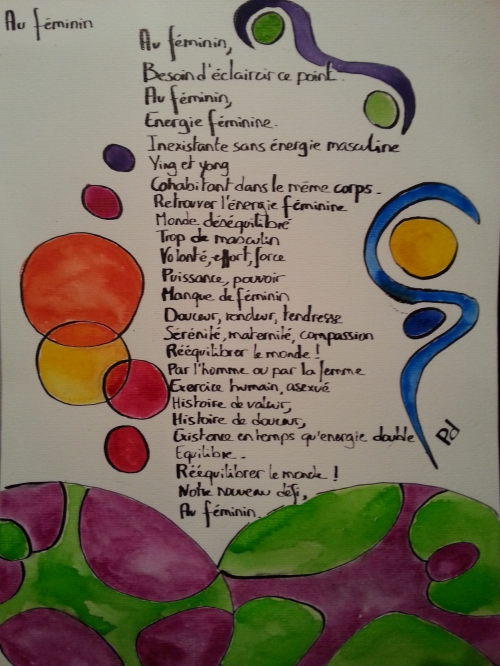 Au féminin
Au féminin,
Besoin d'éclaircir ce point.
Au féminin,
Energie féminine.
Inexistante sans énergie masculine
Ying et yang
Cohabitant dans le même corps.
Retrouver l'énergie féminine
Monde déséquilibré
Trop de masculin
Volonté, effort, force
Puissance, pouvoir
Manque de féminin
Douceur, rondeur, tendresse
Sérénité, maternité, compassion
Rééquilibrer le monde !
Par l'homme ou par la femme
Exercice humain, asexué
Histoire de valeur,
Histoire de douceur,
Existance en temps qu'energie double
Equilibre..
Rééquilibrer le monde !
Notre nouveau défi,
Au féminin.
Pd